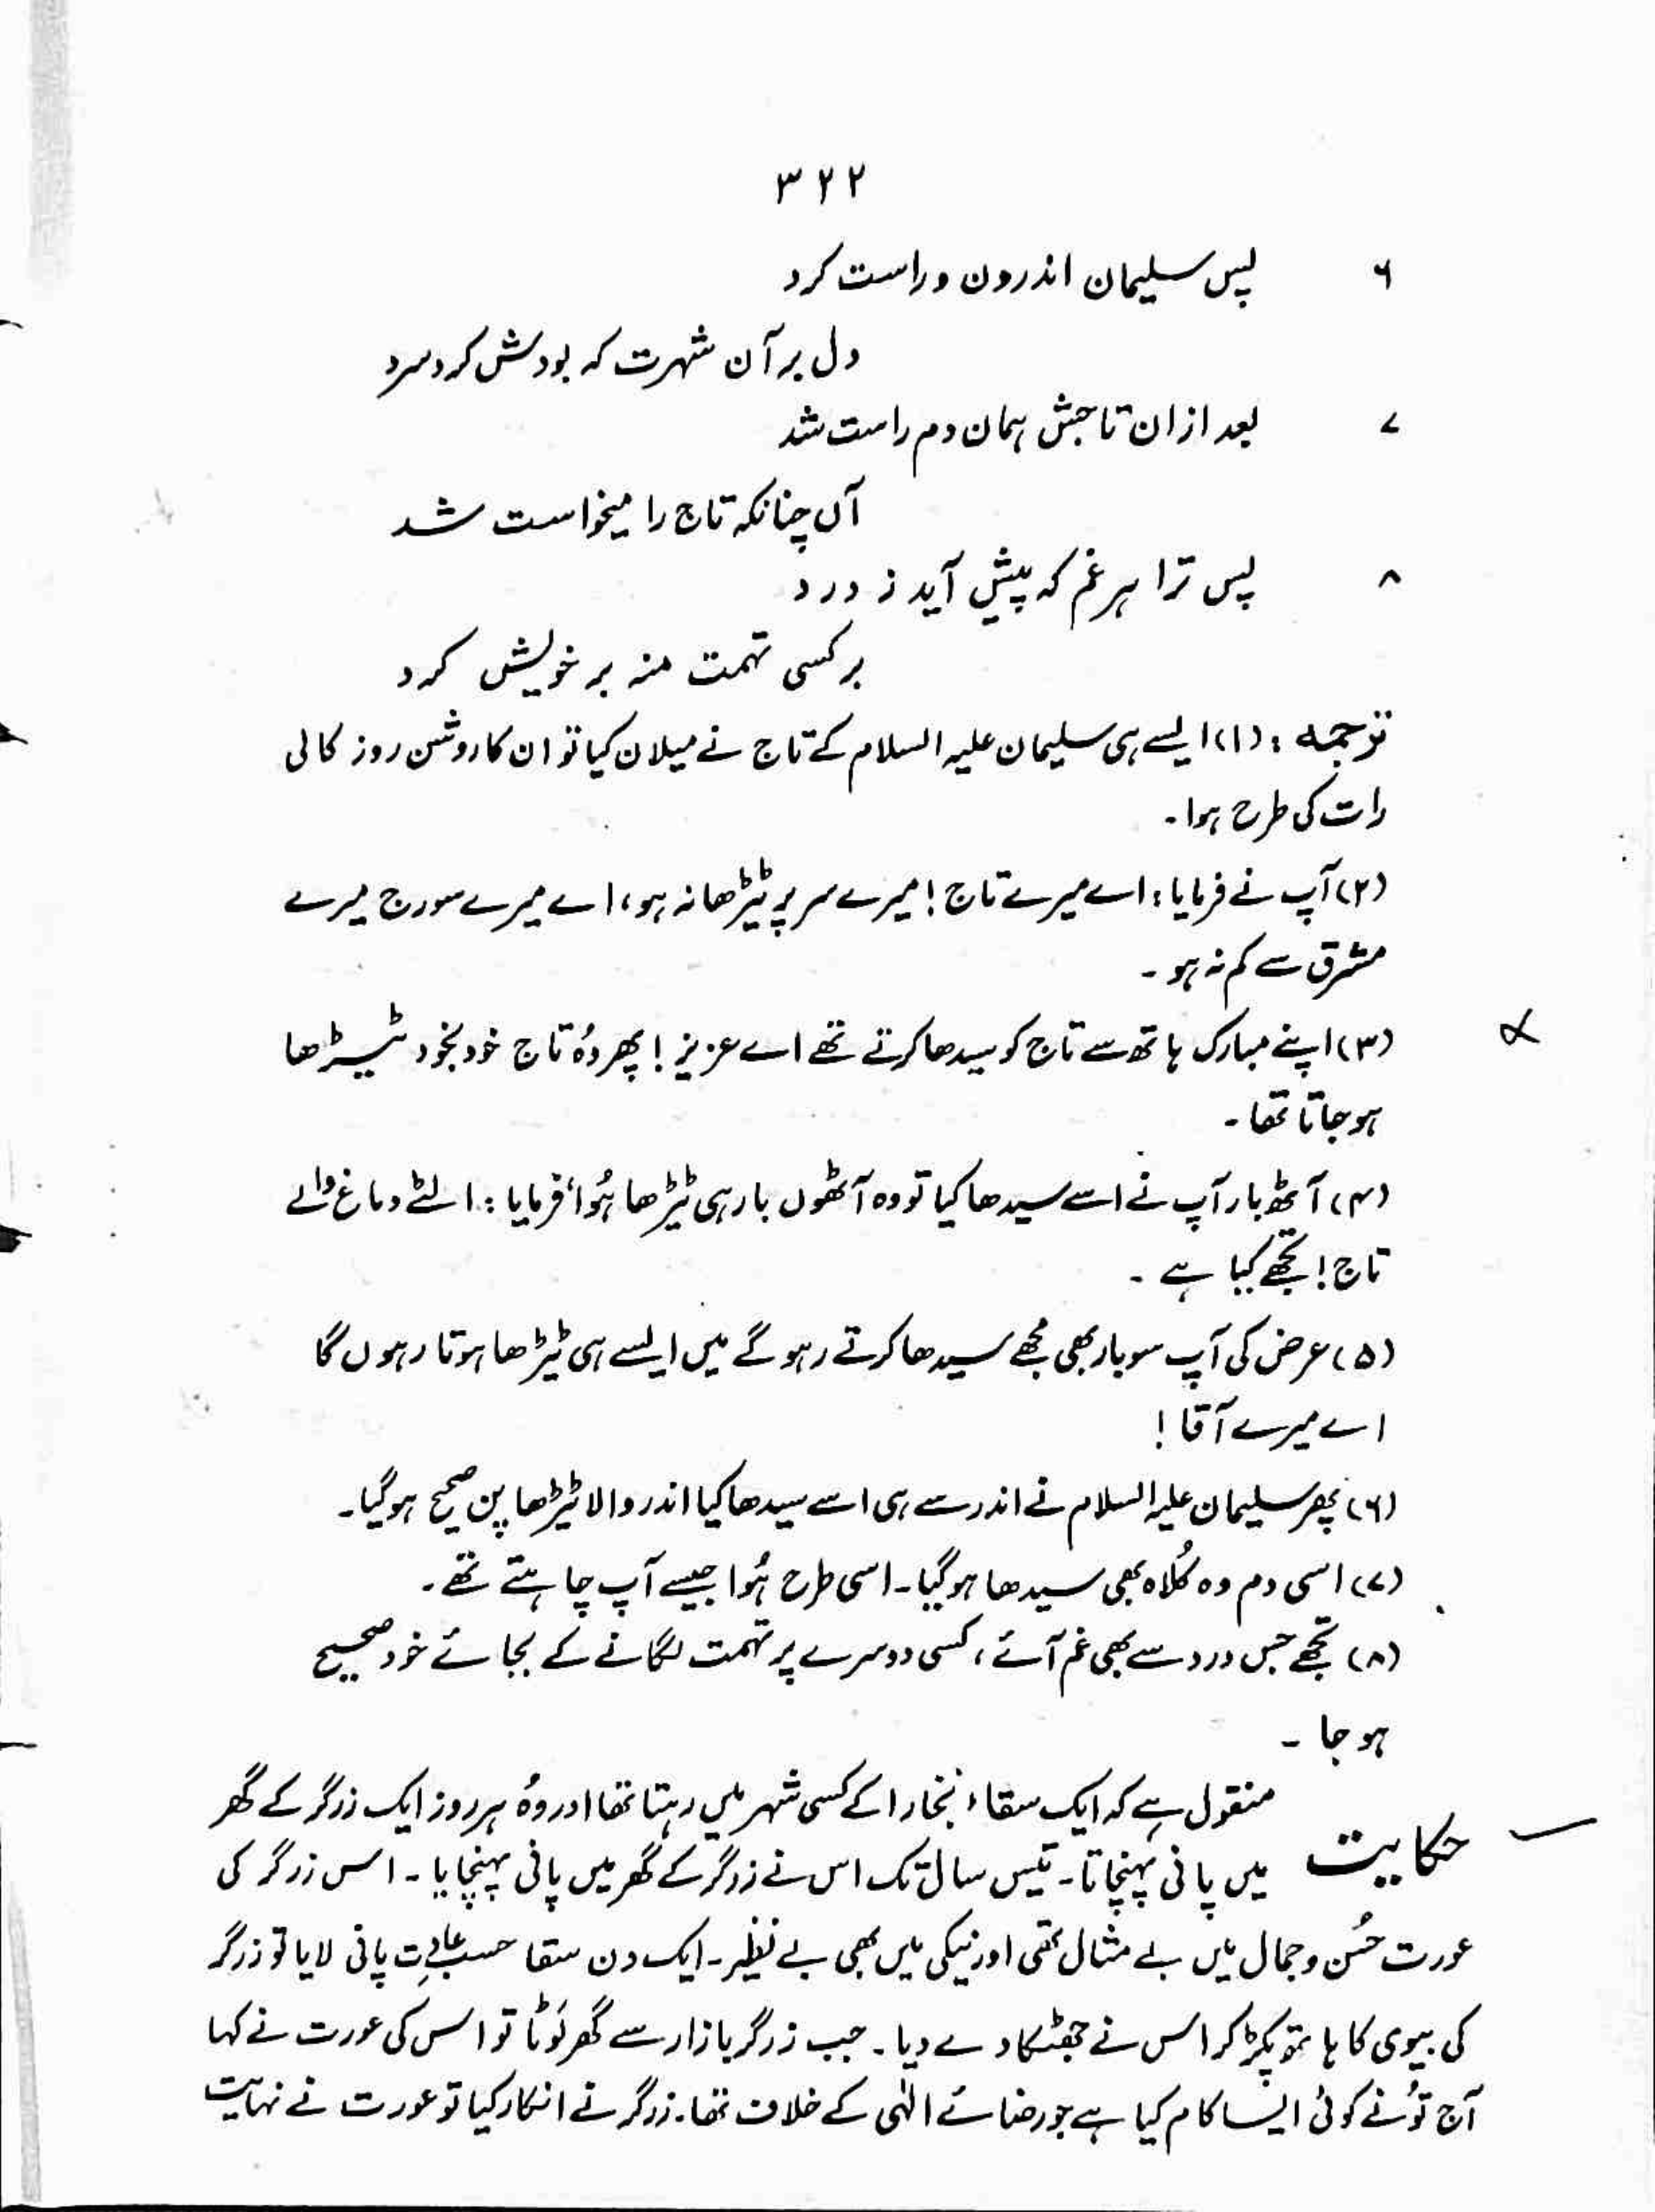 ۳۲۲
۶ پس سلیمان اندرون و راست کرد
دل بر آن شہرت کہ بودش کرد سرد
۷ بعد ازان تاجش ہمان دم راست شد
آں چنانکہ تاج را میخواست شد
۸ پس ترا ہر غم کہ پیش آید ز درد
بر کسی تہمت منہ بر خویش گرد
ترجمہ : (۱) ایسے ہی سلیمان علیہ السلام کے تاج نے میلان کیا تو ان کا روشن روز کالی
رات کی طرح ہوا۔
(۲) آپ نے فرمایا: اے میرے تاج! میرے سر پر ٹیڑھا نہ ہو، اے میرے سورج میرے
مشرق سے کم نہ ہو۔
(۳) اپنے مبارک ہاتھ سے تاج کو سیدھا کرتے تھے اے عزیز! پھر وُہ تاج خود بخود ٹیڑھا
ہو جاتا تھا۔
(۴) آٹھ بار آپ نے اسے سیدھا کیا تو وہ آٹھوں بار ہی ٹیڑھا ہُوا، فرمایا: الٹے دماغ والے
تاج! تجھے کیا ہے۔
(۵) عرض کی آپ سو بار بھی مجھے سیدھا کرتے رہو گے میں ایسے ہی ٹیڑھا ہوتا رہوں گا
اے میرے آقا!
(۶) پھر سلیمان علیہ السلام نے اندر سے ہی اسے سیدھا کیا اندر والا ٹیڑھا پن صحیح ہوگیا۔
(۷) اسی دم وہ کُلاہ بھی سیدھا ہوگیا۔ اسی طرح ہُوا جیسے آپ چاہتے تھے۔
(۸) تجھے جس درد سے بھی غم آئے، کسی دوسرے پر تہمت لگانے کے بجائے خود صحیح
ہو جا۔
منقول ہے کہ ایک سقاء بخارا کے کسی شہر میں رہتا تھا اور وُہ ہر روز ایک زرگر کے گھر
حکایت میں پانی پہنچاتا۔ تیس سال تک اس نے زرگر کے گھر میں پانی پہنچایا۔ اس زرگر کی
عورت حُسن و جمال میں بے مثال تھی اور نیکی میں بھی بے نظیر۔ ایک دن سقا حسب عادت پانی لایا تو زرگر
کی بیوی کا ہاتھ پکڑ کر اس نے جھٹکا دے دیا۔ جب زرگر بازار سے گھر لوٹا تو اس کی عورت نے کہا
آج تُو نے کوئی ایسا کام کیا ہے جو رضائے الٰہی کے خلاف تھا۔ زرگر نے انکار کیا تو عورت نے نہایت